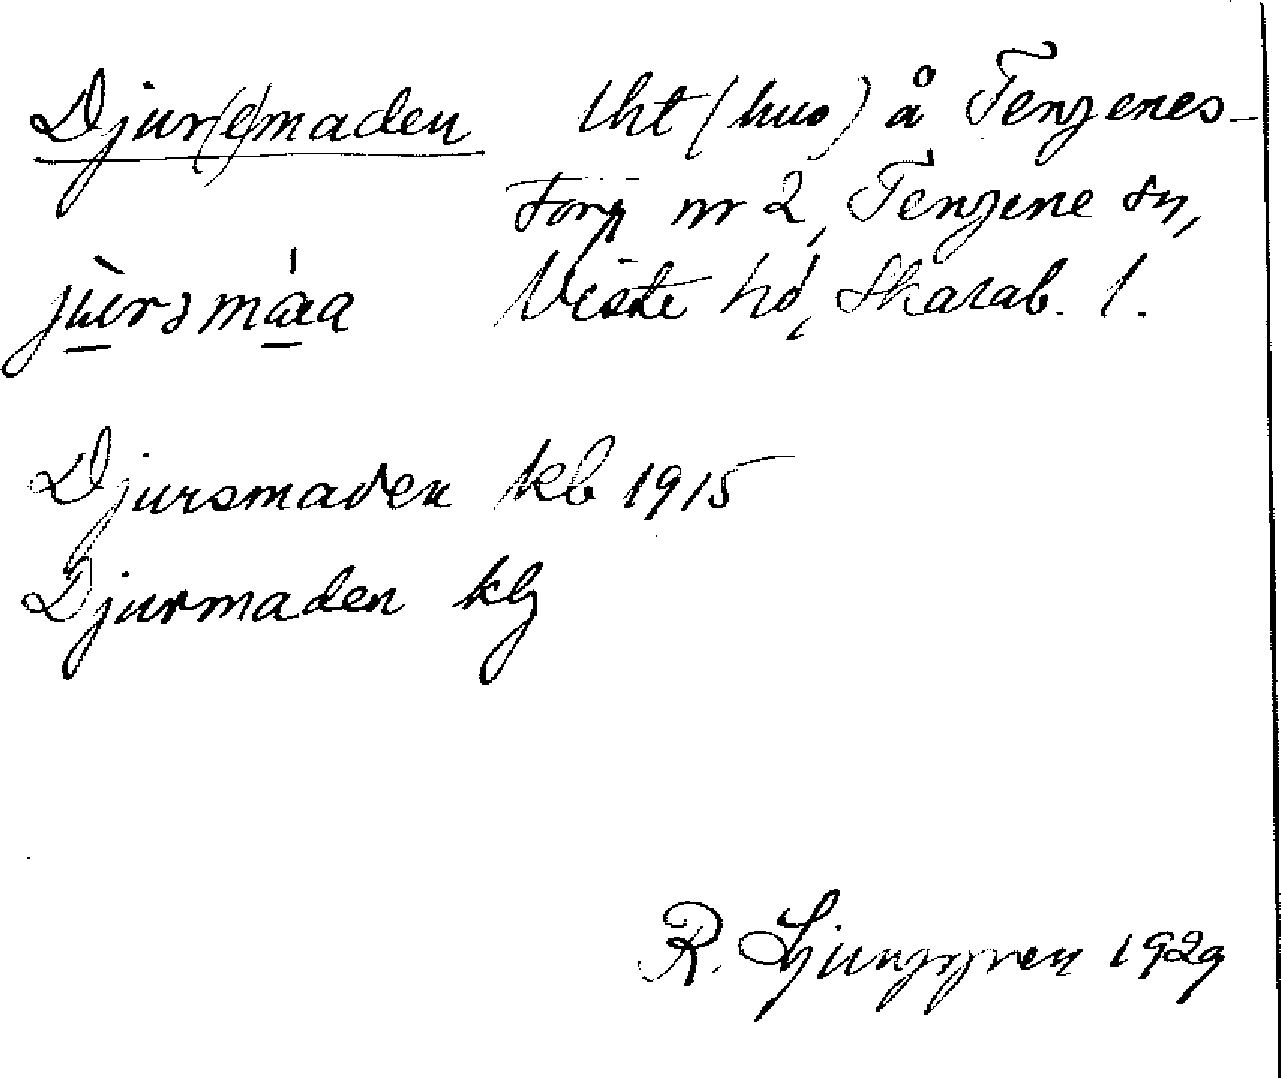 Djur(s)maden lht (hus) å Tengenes-
torp nr 2, Tengene sn,
jùrsmáa Viste hd, Skarab. l.
Djursmaden kb 1915
Djurmaden kg
R. Ljunggren 1929